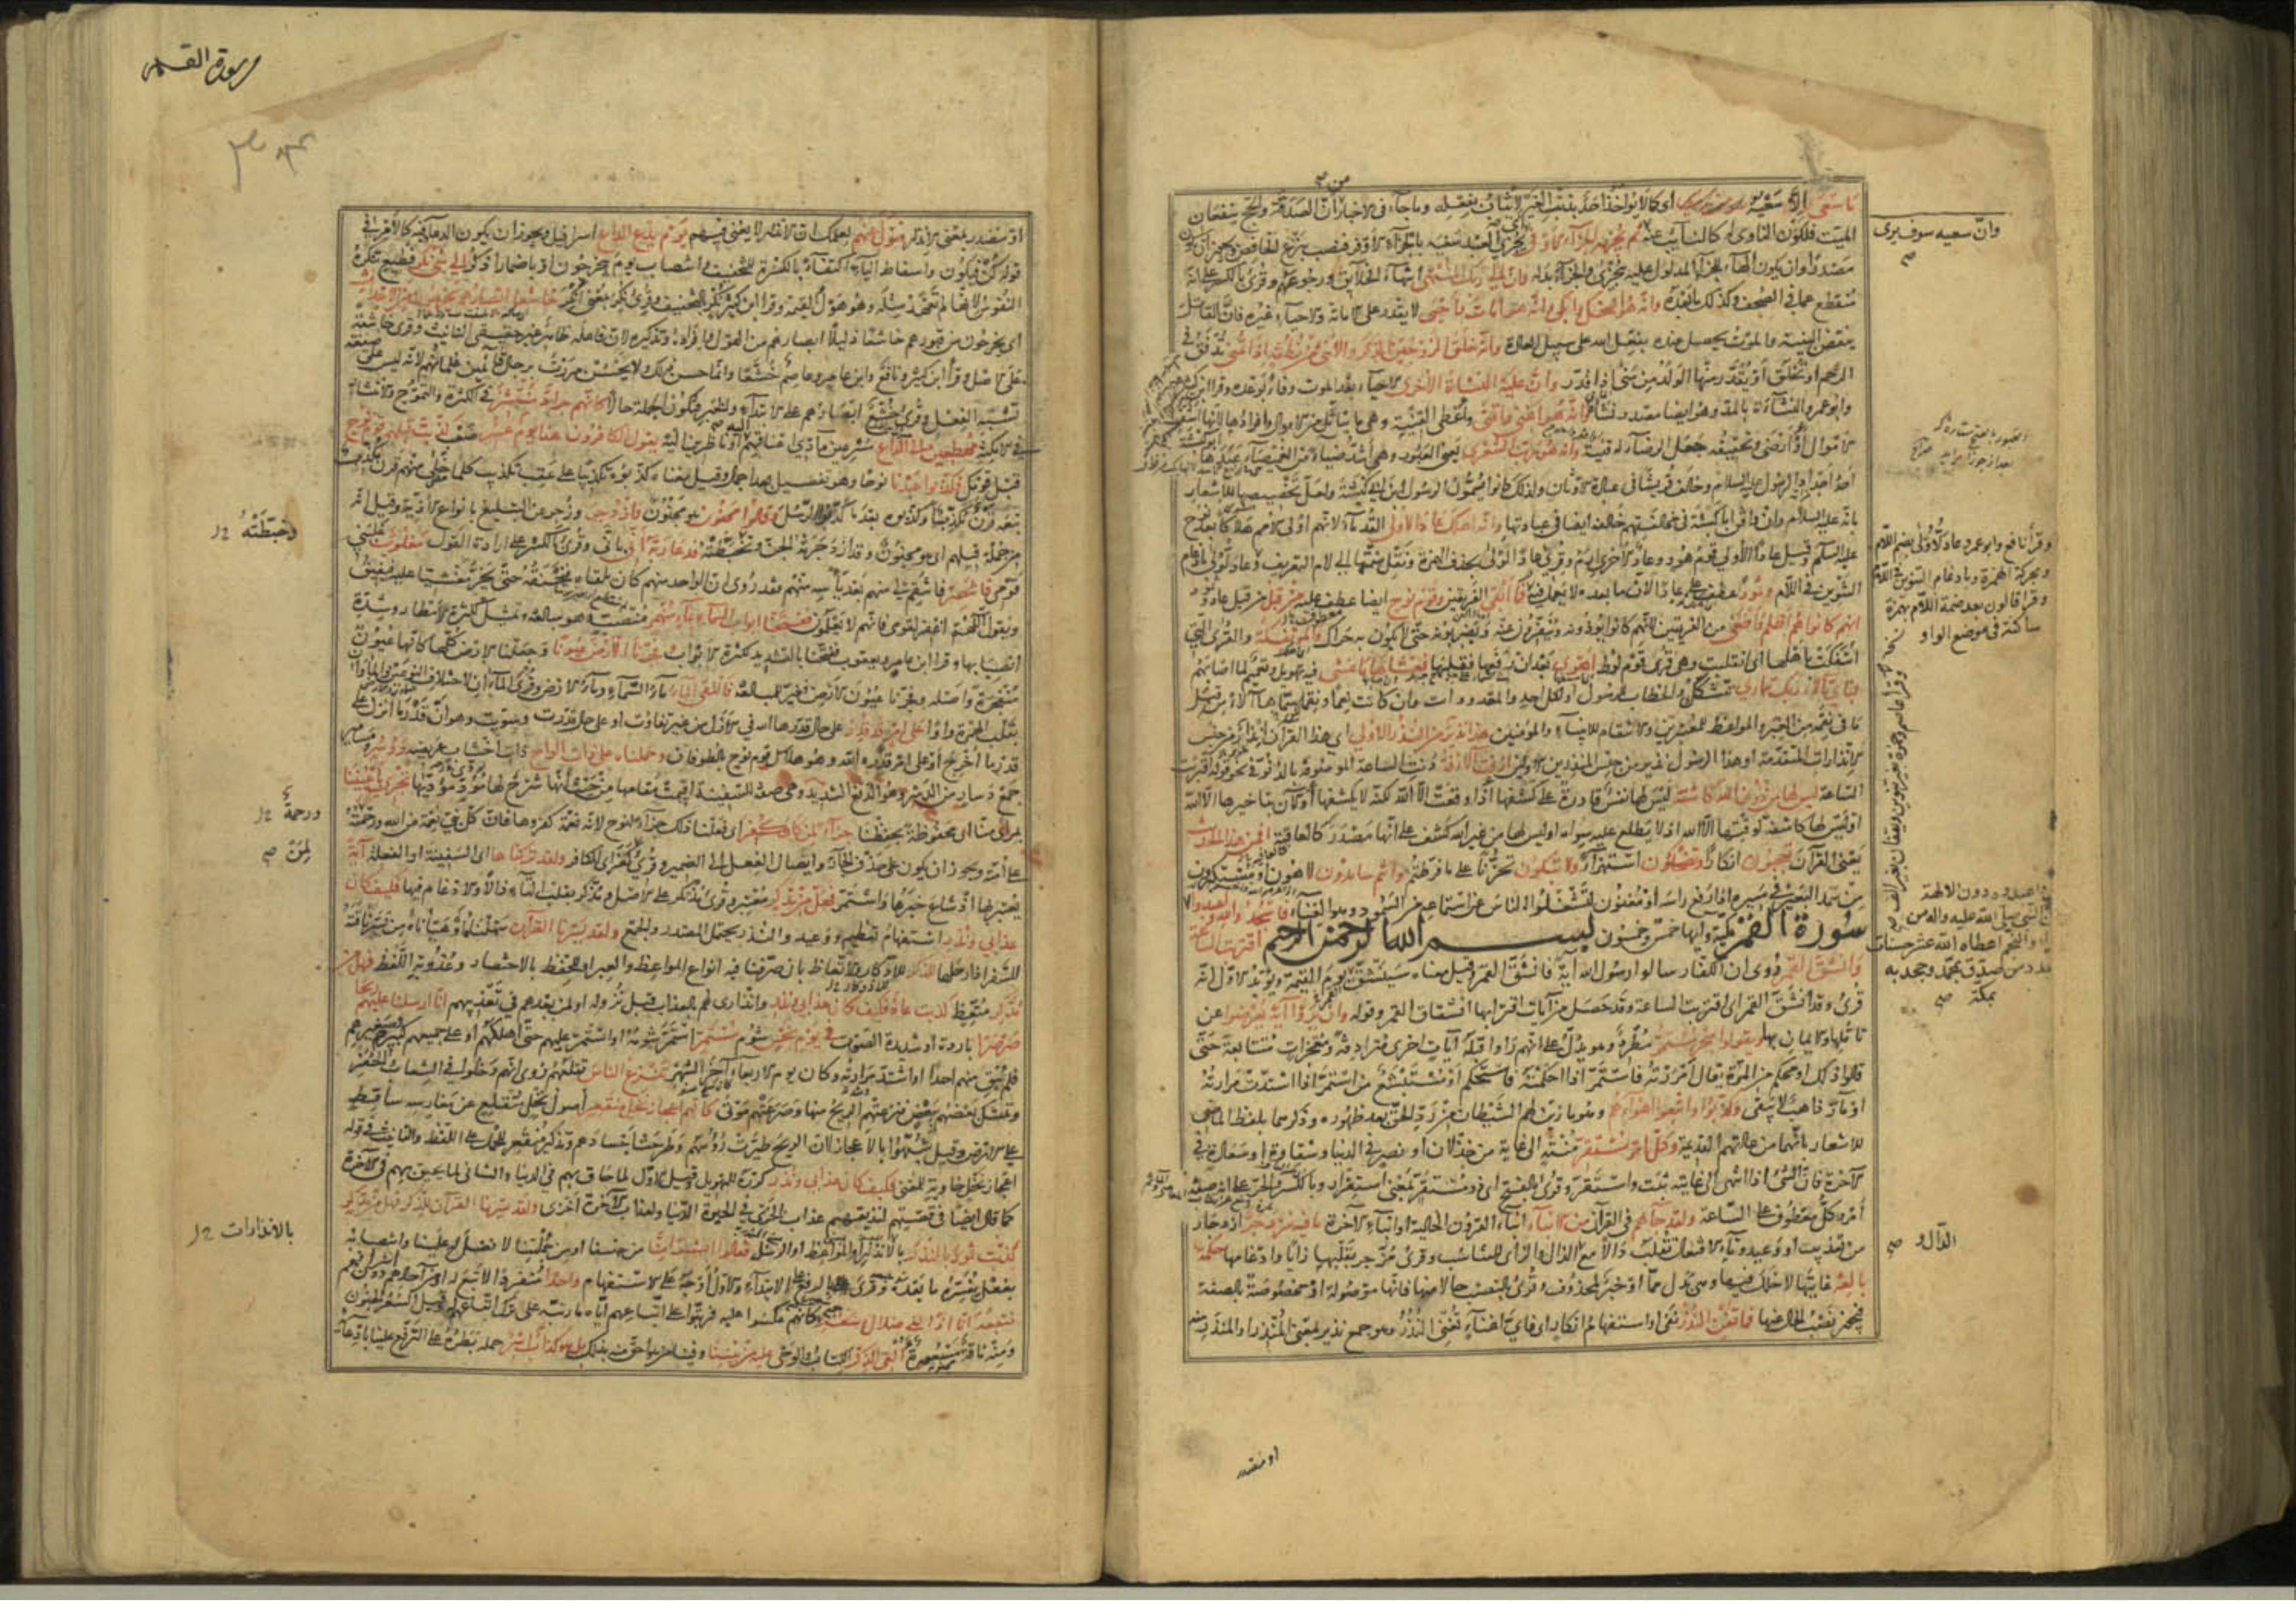 ما سعى الا سعيه اى كما لا يؤاخذ احد بذنب الغير لا يثاب بفعله وما جاء فى الاخبار من ان الصدقة والحج ينفعان
الميت فلكون الناوى له كالنائب عنه ثم يجزيه الجزاء الاوفى اى يجزى العبد سعيه بالجزاء الاوفر فنصب بنزع الخافض ويجوز ان يكون
مصدرا وان يكون الهاء للجزاء المدلول عليه بيجزى والجزاء بدله وان الى ربك المنتهى انتهاء الخلايق ورجوعهم وقرئ بالكسر على انه
منقطع عما فى الصحف وكذلك ما بعده وانه هو اضحك وابكى وانه هو امات واحيى لا يقدر على الاماتة والاحياء غيره فان القاتل
ينقض البنية والموت يحصل عنده بفعل الله على سبيل العادة وانه خلق الزوجين الذكر والانثى من نطفة اذا تمنى تدفق فى
الرحم او تخلق او يقدر منها الولد من منى اذا قدر وان عليه النشاة الاخرى الاحياء بعد الموت وفاء بوعده وقرا ابن كثير
وابو عمرو النشاءة بالمد وهو ايضا مصدر نشأ وانه هو اغنى واقنى واعطى القنية وهى ما يتاثل من الاموال وافرادها لانها اشف
الاموال او ارضى وتحقيقه جعل الرضاء له قنية وانه هو رب الشعرى يعنى العبور وهى اشد ضياء من الغميصاء عبدها ابو كبشة
احد اجداد الرسول عليه السلام وخالف قريشا فى عبادة الاوثان ولذلك كانوا يسمون الرسول ابن ابى كبشة ولعل تخصيصها للاشعار
بانه عليه السلام وان وافق ابا كبشة فى مخالفتهم خالفه ايضا فى عبادتها وانه اهلك عادا الاولى القدماء لانهم اولى الامم هلاكا بعد نوح
عليه السلم وقيل عادا الاولى قوم هود وعاد الاخرى ارم وقرئ عادا لولى بحذف الهمزة ونقل ضمتها الى لام التعريف وعاد لولى بادغام
التنوين فى اللام وثمود عطف على عادا لان ما بعده لا يعمل فيه فما ابقى الفريقين وقوم نوح ايضا عطف عليه من قبل من قبل عاد وثمود
انهم كانوا هم اظلم واطغى من الفريقين لانهم كانوا يؤذونه وينفرون عنه ويضربونه حتى لا يكون به حراك والمؤتفكة والقرى التى
ائتفكت باهلها اى انقلبت وهى قرى قوم لوط اهوى بعد ان رفعها فقلبها فغشاها ما غشى فيه تهويل وتعميم لما اصابهم
فباى آلاء ربك تتمارى تتشكك والخطاب للرسول او لكل احد والمعدودات وان كانت نعما ونقما سماها آلاء من قبل
ما فى نقمه من العبر والمواعظ للمعتبرين والانتقام للانبياء والمؤمنين هذا نذير من النذر الاولى اى هذا القرآن انذار من جنس
الانذارات المتقدمة او هذا الرسول نذير من جنس المنذرين الاولين ازفت الآزفة دنت الساعة الموصوفة بالدنو فى نحو قوله اقتربت
الساعة ليس لها من دون الله كاشفة ليس لها نفس قادرة على كشفها اذا وقعت الا الله لكنه لا يكشفها او الآن بتاخيرها الا الله
او ليس لها كاشفة لوقتها الا الله اذ لا يطلع عليه سواه او ليس لها من غير الله كشف على انها مصدر كالعافية افمن هذا الحديث
يعنى القرآن تعجبون انكارا وتضحكون استهزاء ولا تبكون تحزنا على ما فرطتم وانتم سامدون لاهون او مستكبرون
من سمد البعير فى مسيره اذا رفع راسه او مغنون لتشغلوا الناس عن استماعه من السمود وهو الغناء فاسجدوا لله واعبدوا
سورة القمر مكية وآيها خمس وخمسون بسم الله الرحمن الرحيم اقتربت الساعة
وانشق القمر روى ان الكفار سالوا رسول الله آية فانشق القمر وقيل معناه سينشق يوم القيمة ويؤيد الاول انه
قرئ وقد انشق القمر اى اقتربت الساعة وقد حصل من آيات اقترابها انشقاق القمر وقوله وان يروا آية يعرضوا عن
تاملها والايمان بها ويقولوا سحر مستمر مطرد وهو يدل على انهم راوا قبله آيات اخرى مترادفة ومعجزات متتابعة حتى
قالوا ذلك او محكم من المرة يقال امررته فاستمر اذا احكمته فاستحكم او مستبشع من استمر اذا اشتدت مرارته
او مار ذاهب لا يبقى وكذبوا واتبعوا اهواءهم وهو ما زين لهم الشيطان من رد الحق بعد ظهوره وذكرهما بلفظ الماضى
للاشعار بانهما من عادتهم القديمة وكل امر مستقر منته الى غاية من خذلان او نصر فى الدنيا وشقاوة او سعادة فى
الآخرة فان الشئ اذا انتهى الى غايته ثبت واستقر وقرئ بالفتح اى ذو مستقر بمعنى استقرار وبالكسر والجر على انه صفة
امر وكل معطوف على الساعة ولقد جاءهم فى القرآن من الانباء انباء القرون الخالية او انباء الآخرة ما فيه مزدجر ازدجار
من تعذيب او وعيد وتاء الافتعال تقلب دالا مع الذال والزاى للتناسب وقرئ مزجر بقلبها زايا وادغامها حكمة
بالغة غايتها لا خلل فيها وهى بدل مما او خبر لمحذوف وقرئ بالنصب حالا منها فانها موصولة او مخصوصة بالصفة
فيجوز نصب الحال عنها فما تغن النذر نفى او استفهام انكار اى فاى غناء تغنى النذر وهو جمع نذير بمعنى المنذر او المنذر منه
وان سعيه سوف يرى صح
وقرأ نافع وابو عمرو عاد لولى بضم اللام
وبحركة الهمزة وبادغام التنوين فى اللام
وقرا قالون بعد ضمة اللام بهمزة
ساكنة فى موضع الواو
وقرا عاصم وحمزة بغير تنوين ويقفان بغير الف صح
واعبدوه دون الآلهة
النبى صلى الله عليه وآله من
والنجم اعطاه الله عشر حسنات
بعدد من صدق بمحمد وجحد به
بمكة صح
الدال و صح
او مصدر
سورة القمر
او مصدر بمعنى الانذار فتول عنهم لعلمك ان الانذار لا يغنى فيهم يوم يدع الداع اسرافيل ويجوز ان يكون الدعاء فيه كالامر فى
قوله كن فيكون واسقاط الياء اكتفاء بالكسرة للتخفيف وانتصاب يوم بيخرجون او باضمار اذكر الى شئ نكر فظيع تنكره
النفوس لانها لم تعهد مثله وهو هول القيمة وقرا ابن كثير نكر بالتخفيف وقرئ نكر بمعنى انكر خاشعا ابصارهم يخرجون من الاجداث
اى يخرجون من قبورهم خاشعا ذليلا ابصارهم من الهول وافراده وتذكيره لان فاعله ظاهر غير حقيقى التانيث وقرئ خاشعة
على الاصل وقرا ابن كثير ونافع وابن عامر وعاصم خشعا وانما حسن ذلك ولا يحسن مررت برجال قائمين غلمانهم لانه ليس على صيغة
تشبه الفعل وقرئ خشع ابصارهم على الابتداء والخبر فتكون الجملة حالا كانهم جراد منتشر فى الكثرة والتموج والانتشار
فى الامكنة مهطعين الى الداع مسرعين مادى اعناقهم اليه او ناظرين اليه يقول الكافرون هذا يوم عسر صعب كذبت قبلهم قوم نوح
قبل قومك فكذبوا عبدنا نوحا وهو تفصيل بعد اجمال وقيل معناه كذبوه تكذيبا على عقب تكذيب كلما خلى منهم قرن مكذب
تبعه قرن مكذب او كذبوه بعد ما كذبوا الرسل وقالوا مجنون هو مجنون وازدجر وزجر عن التبليغ بانواع الاذية وقيل انه
من جملة قيلهم اى هو مجنون وقد ازدجرته الجن وتخبطته فدعا ربه انى بانى وقرئ بالكسر على ارادة القول مغلوب غلبنى
قومى فانتصر فانتقم لى منهم بعد ياسه منهم فقد روى ان الواحد منهم كان يلقاه فيخنقه حتى يخر مغشيا عليه فيفيق
ويقول اللهم اغفر لقومى فانهم لا يعلمون ففتحنا ابواب السماء بماء منهمر منصب وهو مبالغة وتمثيل لكثرة الامطار وشدة
انصبابها وقرا ابن عامر ويعقوب ففتحنا بالتشديد لكثرة الابواب وفجرنا الارض عيونا وجعلنا الارض كلها كانها عيون
منفجرة واصله وفجرنا عيون الارض فغير للمبالغة فالتقى الماء ماء السماء وماء الارض وقرئ الماآن لاختلاف النوعين والماوان
بقلب الهمزة واوا على امر قد قدر على حال قدرها الله فى الازل من غير تفاوت او على حال قدرت وسويت وهو ان قدر ما انزل على
قدر ما اخرج او على امر قدره الله وهو هلاك قوم نوح بالطوفان وحملناه على ذات الواح ذات اخشاب عريضة ودسر ومسامير
جمع دسار من الدسر وهو الدفع الشديد وهى صفة للسفينة اقيمت مقامها من حيث انها شرح لها تؤدى مؤداها تجرى باعيننا
بمراى منا اى محفوظة بحفظنا جزاء لمن كان كفر اى فعلنا ذلك جزاء لنوح لانه نعمة كفروها فان كل نبى نعمة من الله ورحمة
على امته ويجوز ان يكون على حذف الجار وايصال الفعل الى الضمير وقرئ لمن كفر اى للكافر ولقد تركناها اى السفينة او الفعلة آية
يعتبر بها اذ شاع خبرها واستمر فهل من مدكر معتبر وقرئ مذتكر على الاصل ومذكر بقلب التاء ذالا والادغام فيها فكيف كان
عذابى ونذر استفهام تعظيم ووعيد والنذر يحتمل المصدر والجمع ولقد يسرنا القرآن سهلناه او هيأناه من يسر ناقته
للسفر اذا رحلها للذكر للادكار والاتعاظ بان صرفنا فيه انواع المواعظ والعبر او للحفظ بالاختصار وعذوبة اللفظ فهل من
مدكر متعظ كذبت عاد فكيف كان عذابى ونذر وانذارى لهم بالعذاب قبل نزوله او لمن بعدهم فى تعذيبهم انا ارسلنا عليهم ريحا
صرصرا باردة او شديدة الصوت فى يوم نحس شوم مستمر استمر شومه او استمر عليهم حتى اهلكهم او على جميعهم كبيرهم وصغيرهم
فلم يبق منهم احدا او اشتد مرارته وكان يوم الاربعاء آخر الشهر تنزع الناس تقلعهم روى انهم دخلوا فى الشعاب والحفر
وتمسك بعضهم ببعض فنزعتهم الريح منها وصرعتهم موتى كانهم اعجاز نخل منقعر اصول نخل منقلع عن مغارسه ساقط
على الارض وقيل شبهوا بالاعجاز لان الريح طيرت رؤسهم وطرحت اجسادهم وتذكير منقعر للحمل على اللفظ والتانيث فى قوله
اعجاز نخل خاوية للمعنى فكيف كان عذابى ونذر كرره للتهويل وقيل الاول لما حاق بهم فى الدنيا والثانى لما يحيق بهم فى الآخرة
كما قال ايضا فى قصتهم لنذيقهم عذاب الخزى فى الحيوة الدنيا ولعذاب الآخرة اخزى ولقد يسرنا القرآن للذكر فهل من مدكر
كذبت ثمود بالنذر بالانذارات والمواعظ او الرسل فقالوا ابشرا منا من جنسنا او من جملتنا لا فضل له علينا وانتصابه
بفعل يفسره ما بعده وقرئ بالرفع على الابتداء والاول اوجه للاستفهام واحدا منفردا لا تبع له او من آحادهم دون اشرافهم
نتبعه انا اذا لفى ضلال وسعر كانهم عكسوا عليه فرتبوا على اتباعهم اياه ما رتبه على ترك اتباعهم له وقيل السعر الجنون
ومنه ناقة مسعورة ءالقى الذكر الكتاب والوحى عليه من بيننا وفينا من هو احق منه بذلك بل هو كذاب اشر حمله بطره على الترفع علينا بادعائه
وخبطته
ورحمة
لمن صح
بالانذارات